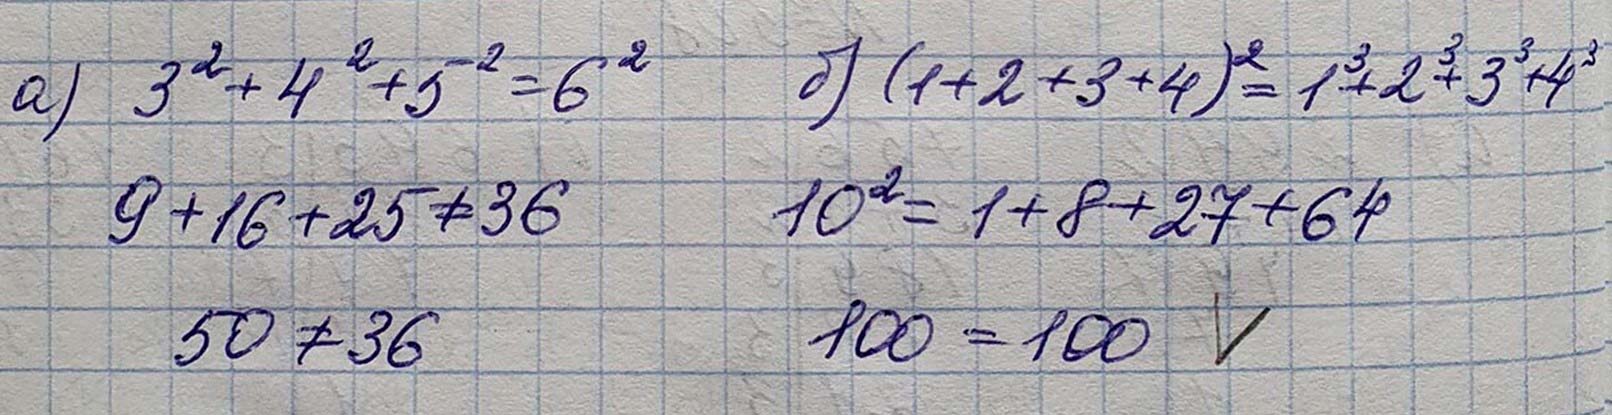 а) 3² + 4² + 5² = 6²
9 + 16 + 25 ≠ 36
50 ≠ 36
б) (1 + 2 + 3 + 4)² = 1³ + 2³ + 3³ + 4³
10² = 1 + 8 + 27 + 64
100 = 100 ✓